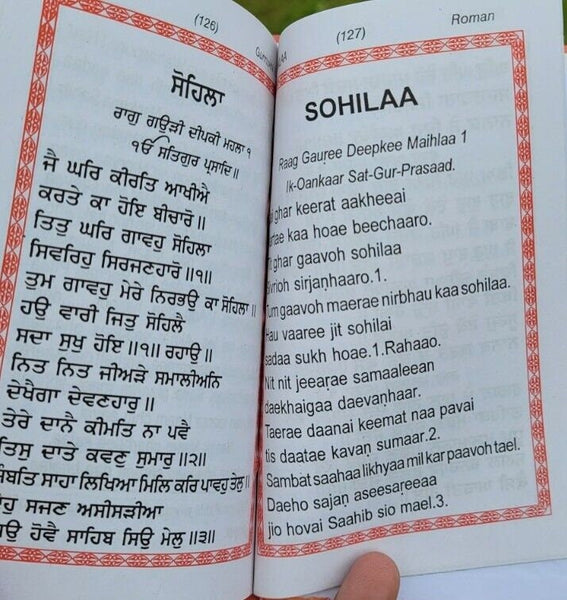 (126)
ਸੋਹਿਲਾ
ਰਾਗੁ ਗਉੜੀ ਦੀਪਕੀ ਮਹਲਾ ੧
ੴ ਸਤਿਗੁਰ ਪ੍ਰਸਾਦਿ॥
ਜੈ ਘਰਿ ਕੀਰਤਿ ਆਖੀਐ
ਕਰਤੇ ਕਾ ਹੋਇ ਬੀਚਾਰੋ॥
ਤਿਤੁ ਘਰਿ ਗਾਵਹੁ ਸੋਹਿਲਾ
ਸਿਵਰਿਹੁ ਸਿਰਜਣਹਾਰੋ॥੧॥
ਤੁਮ ਗਾਵਹੁ ਮੇਰੇ ਨਿਰਭਉ ਕਾ ਸੋਹਿਲਾ॥
ਹਉ ਵਾਰੀ ਜਿਤੁ ਸੋਹਿਲੈ
ਸਦਾ ਸੁਖੁ ਹੋਇ॥੧॥ ਰਹਾਉ॥
ਨਿਤ ਨਿਤ ਜੀਅੜੇ ਸਮਾਲੀਅਨਿ
ਦੇਖੈਗਾ ਦੇਵਣਹਾਰੁ॥
ਤੇਰੇ ਦਾਨੈ ਕੀਮਤਿ ਨਾ ਪਵੈ
ਤਿਸੁ ਦਾਤੇ ਕਵਣੁ ਸੁਮਾਰੁ॥੨॥
ਸੰਬਤਿ ਸਾਹਾ ਲਿਖਿਆ ਮਿਲਿ ਕਰਿ ਪਾਵਹੁ ਤੇਲੁ॥
ਸਜਣ ਅਸੀਸੜੀਆ
ਹੋਵੈ ਸਾਹਿਬ ਸਿਉ ਮੇਲੁ॥੩॥
(127)
Roman
SOHILAA
Raag Gauṛee Deepkee Maihlaa 1
Ik-Oankaar Sat-Gur-Prasaad.
ghar keerat aakheeai
kaa hoae beechaaro.
ghar gaavoh sohilaa
sirjaṇhaaro.1.
Tum gaavoh maerae nirbhau kaa sohilaa.
Hau vaaree jit sohilai
sadaa sukh hoae.1.Rahaao.
Nit nit jeeaṛae samaaleean
daekhaigaa daevaṇhaar.
Taerae daanai keemat naa pavai
tis daatae kavaṇ sumaar.2.
Sambat saahaa likhyaa mil kar paavoh tael.
Daeho sajaṇ aseesaṛeeaa
jio hovai Saahib sio mael.3.